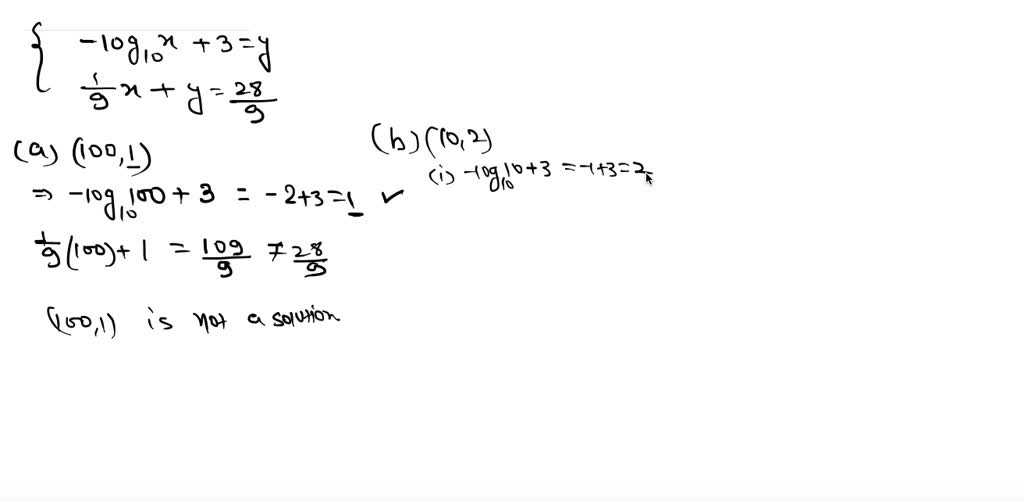 { -log₁₀x + 3 = y
1/9 x + y = 28/9
(a) (100,1)
⇒ -log₁₀100 + 3 = -2+3=1 ✓
1/9(100)+1 = 109/9 ≠ 28/9
(100,1) is not a solution
(b) (10,2)
(i) -log₁₀10+3 = -1+3=2